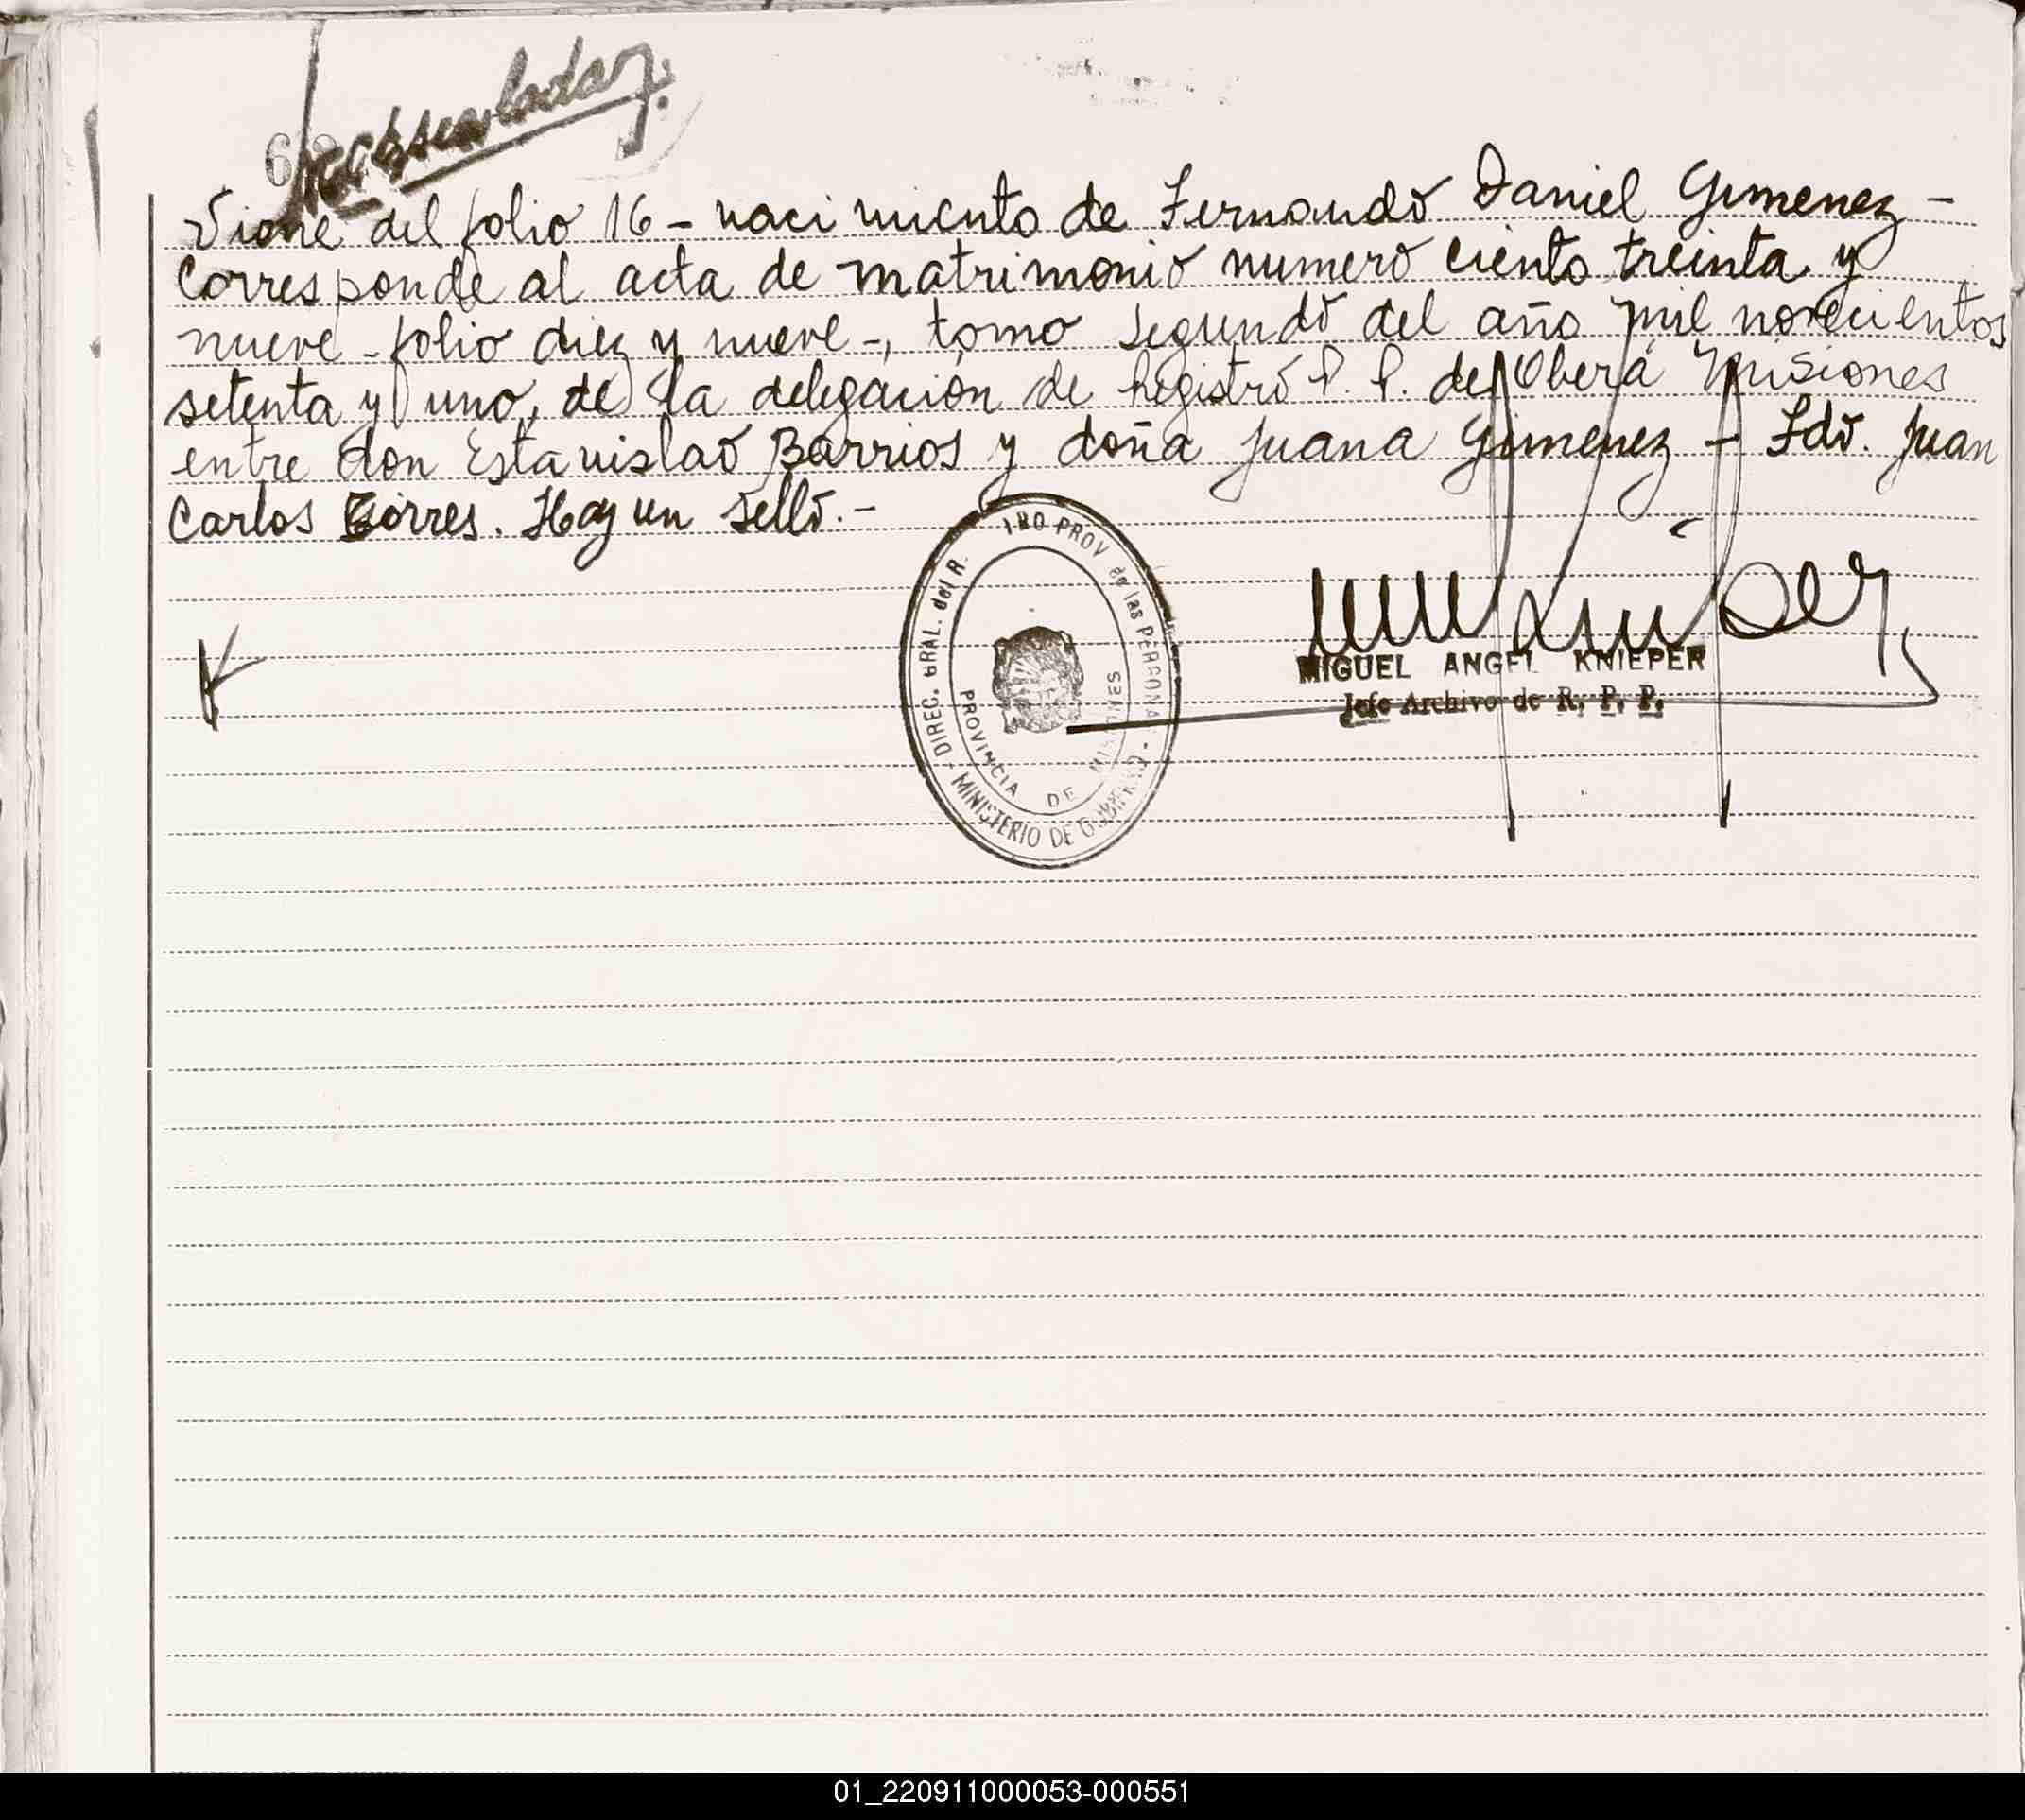 Viene del folio 16 - nacimiento de Fernando Daniel Gimenez -
Corresponde al acta de matrimonio numero ciento treinta y
nueve - folio diez y nueve -, tomo segundo del año mil novecientos
setenta y uno, de la delegación de Registro P. P. de Oberá Misiones
entre don Estanislao Barrios y doña Juana Gimenez - Fdo. Juan
Carlos Torres. Hay un sello. -
DIREC. GRAL. del R. PROV de las PERSONAS - MINISTERIO DE GOBIERNO
PROVINCIA DE MISIONES
MIGUEL ANGEL KNIEPER
Jefe Archivo de R. P. P.
01_220911000053-000551